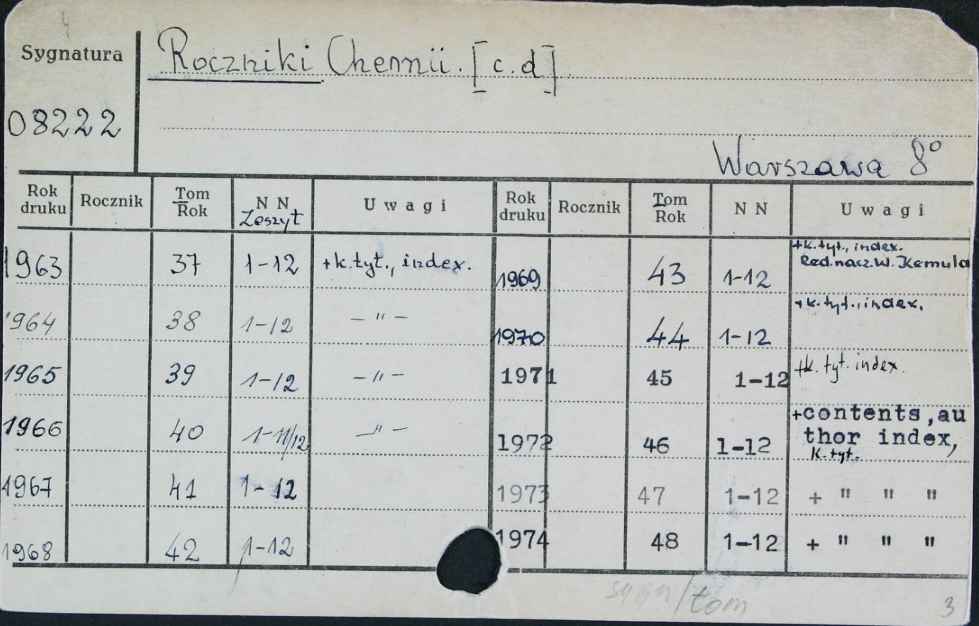 4
Sygnatura
Roczniki Chemii. [c.d]
08222
Warszawa 8°
Rok druku Rocznik Tom Rok NN Zeszyt Uwagi Rok druku Rocznik Tom Rok NN Uwagi
1963 37 1-12 +k.tyt., index. 1969 43 1-12 +k.tyt., index. Red.nacz.W.Kemula
1964 38 1-12 — " — 1970 44 1-12 +k.tyt., index.
1965 39 1-12 — " — 1971 45 1-12 +k. tyt. index.
1966 40 1-11/12 — " — 1972 46 1-12 +contents, au thor index, k.tyt.
1967 41 1-12 1973 47 1-12 + " " "
1968 42 1-12 1974 48 1-12 + " " "
sygn/tom
3